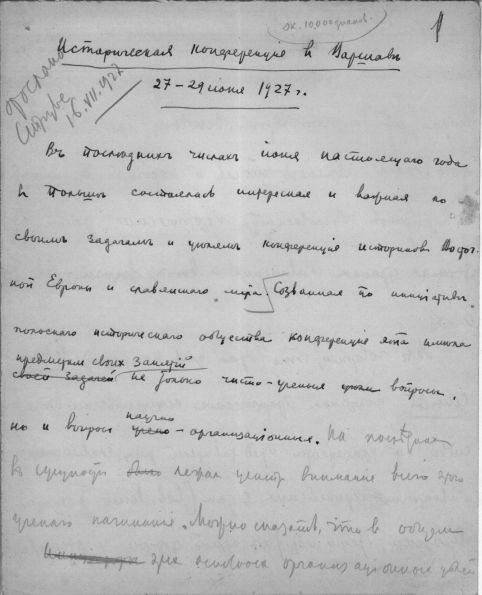 ок. 10.000 знаков.
Историческая конференция въ Варшавѣ
27-29 июня 1927 г.
послано
Струве
16.VII.927
Въ послѣднихъ числахъ июня настоящаго года
въ Польшѣ состоялась интересная и важная по
своимъ задачамъ и цѣлямъ конференция историковъ Восточ-
ной Европы и славянскаго мира. Созванная по инициативѣ
польскаго историческаго общества конференция эта имѣла
предметомъ своихъ занятий
своей задачей не только чисто-ученыя вопросы,
но и вопросы научно
учено-организационные. На послѣднихъ
въ сущности было лежалъ центръ внимания всего этого
ученаго начинания. Можно сказать, что в общем
эта основная организационная